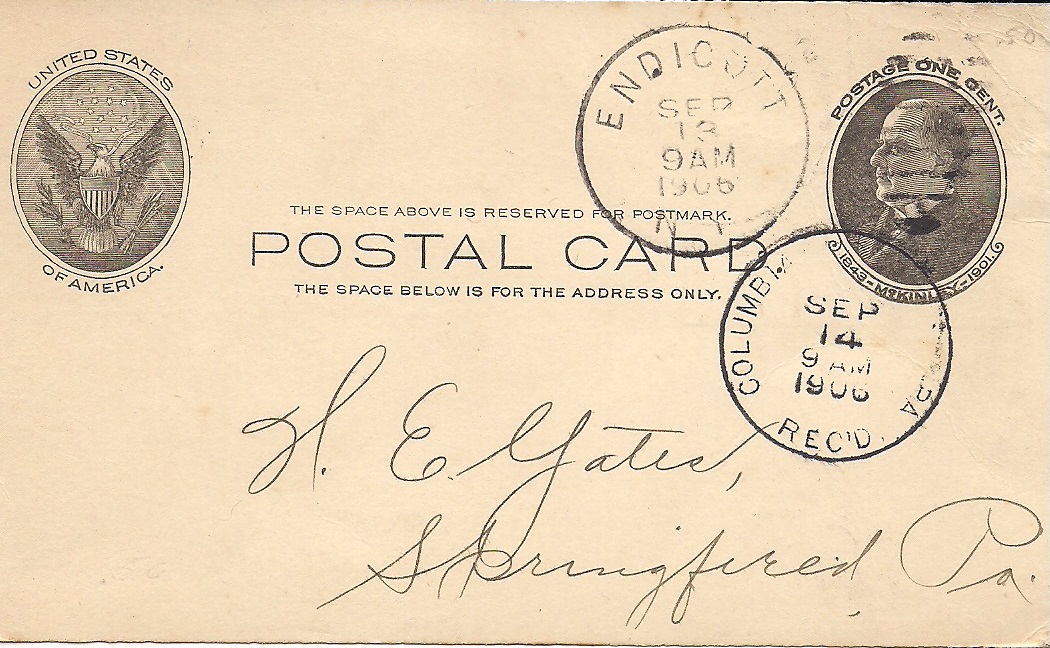 UNITED STATES
OF AMERICA.
ENDICOTT
SEP
13
9AM
1906
N.Y.
POSTAGE ONE CENT.
1843-McKINLEY-1901.
THE SPACE ABOVE IS RESERVED FOR POSTMARK.
POSTAL CARD
THE SPACE BELOW IS FOR THE ADDRESS ONLY.
COLUMBIA
PA
SEP
14
9 AM
1906
REC'D.
H. E. Yates,
Springfield, Pa.